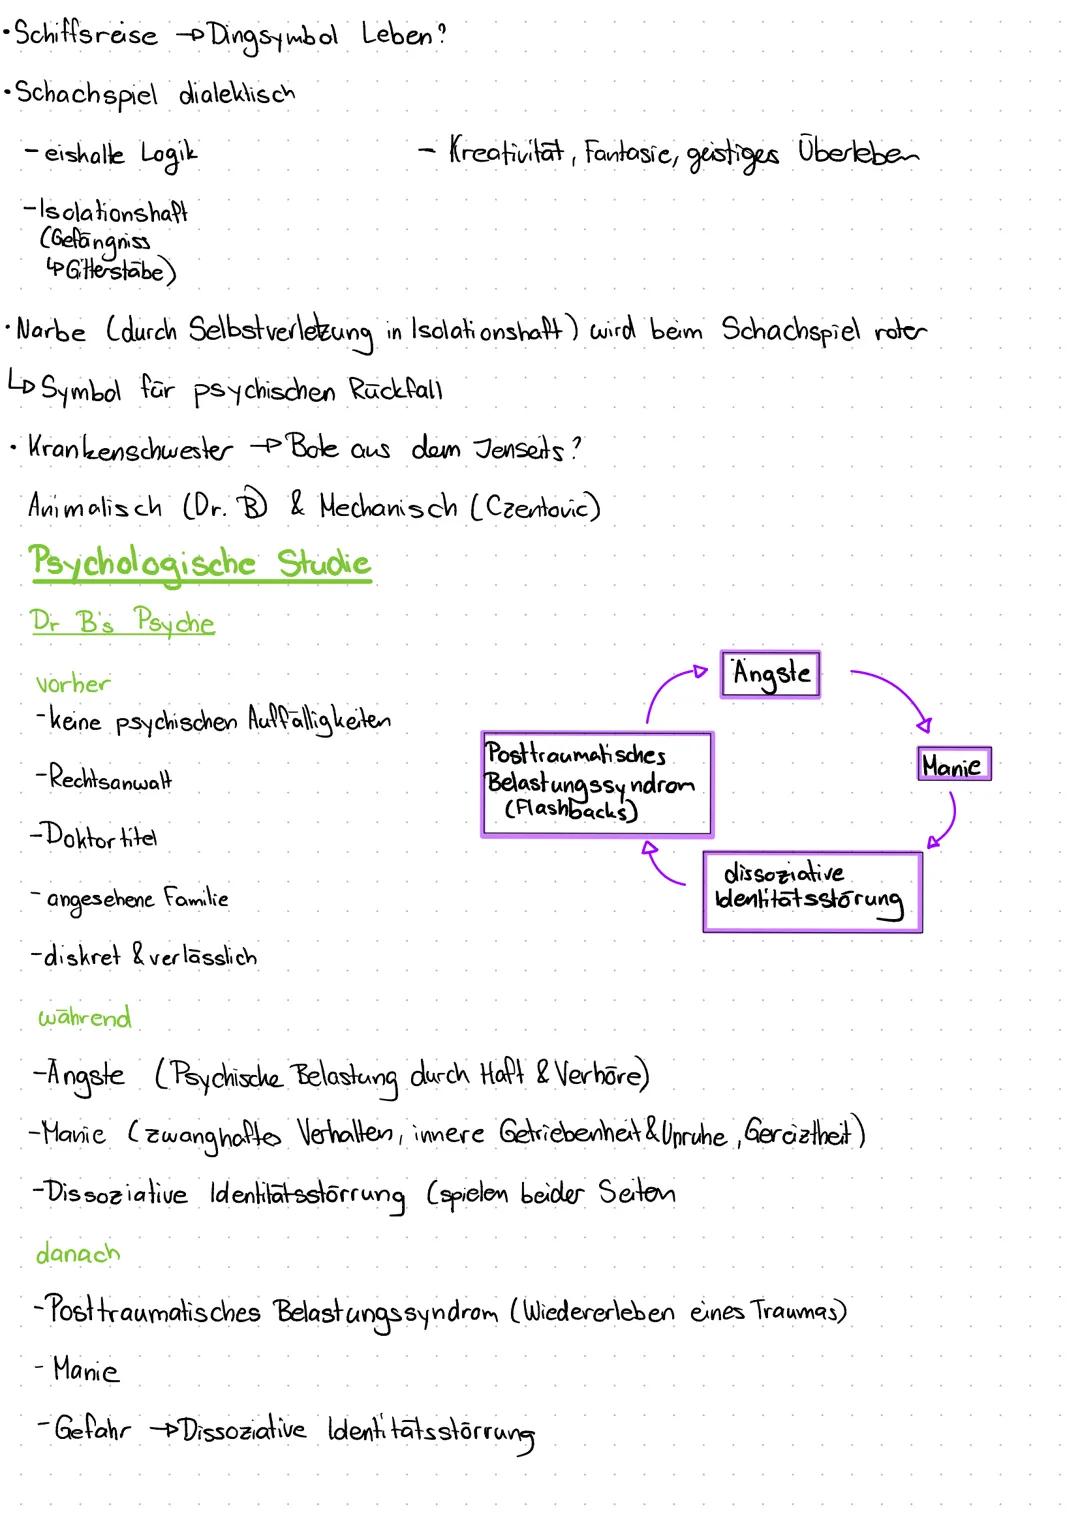 •Schiffsreise → Dingsymbol Leben?
•Schachspiel dialektisch
- eiskalte Logik - Kreativität, Fantasie, geistiges Überleben
- Isolationshaft
(Gefängniss
↳ Gitterstäbe)
•Narbe (durch Selbstverletzung in Isolationshaft) wird beim Schachspiel roter
↳ Symbol für psychischen Rückfall
• Krankenschwester → Bote aus dem Jenseits?
Animalisch (Dr. B) & Mechanisch (Czentovic)
Psychologische Studie
Dr B's Psyche
vorher
- keine psychischen Auffälligkeiten
- Rechtsanwalt
- Doktortitel
- angesehene Familie
- diskret & verlässlich
Ängste
Manie
dissoziative
Identitätsstörung
Posttraumatisches
Belastungssyndrom
(Flashbacks)
während
- Ängste (Psychische Belastung durch Haft & Verhöre)
- Manie (zwanghaftes Verhalten, innere Getriebenheit & Unruhe, Gereiztheit)
- Dissoziative Identitätsstörrung (spielen beider Seiten
danach
- Posttraumatisches Belastungssyndrom (Wiedererleben eines Traumas)
- Manie
- Gefahr → Dissoziative Identitätsstörrung